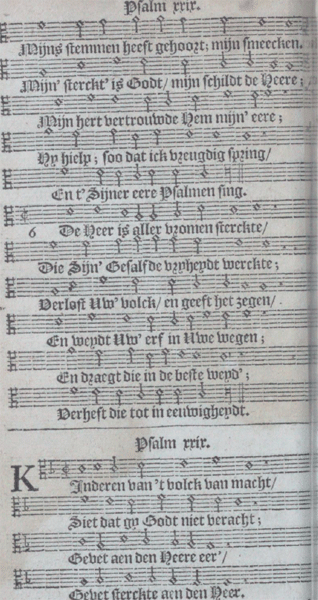 Psalm xxix.
Mijns stemmen heeft gehoort; mijn smeecken.
Mijn' sterckt' is Godt/ mijn schildt de Heere;
Mijn hert vertrouwde Hem mijn' eere;
Hy hielp; soo dat ick vreugdig spring/
En t' Sijner eere Psalmen sing.
6 De Heer is aller vromen sterckte/
Die Sijn' Gesalfde vryheydt werckte;
Verlost Uw' volck/ en geeft het zegen/
En weydt Uw' erf in Uwe wegen;
En draegt die in de beste weyd';
Verheft die tot in eeuwigheydt.
Psalm xxix.
Kinderen van 't volck van macht/
Siet dat gy Godt niet veracht;
Gebet aen den Heere eer'/
Gebet sterckte aen den Heer.